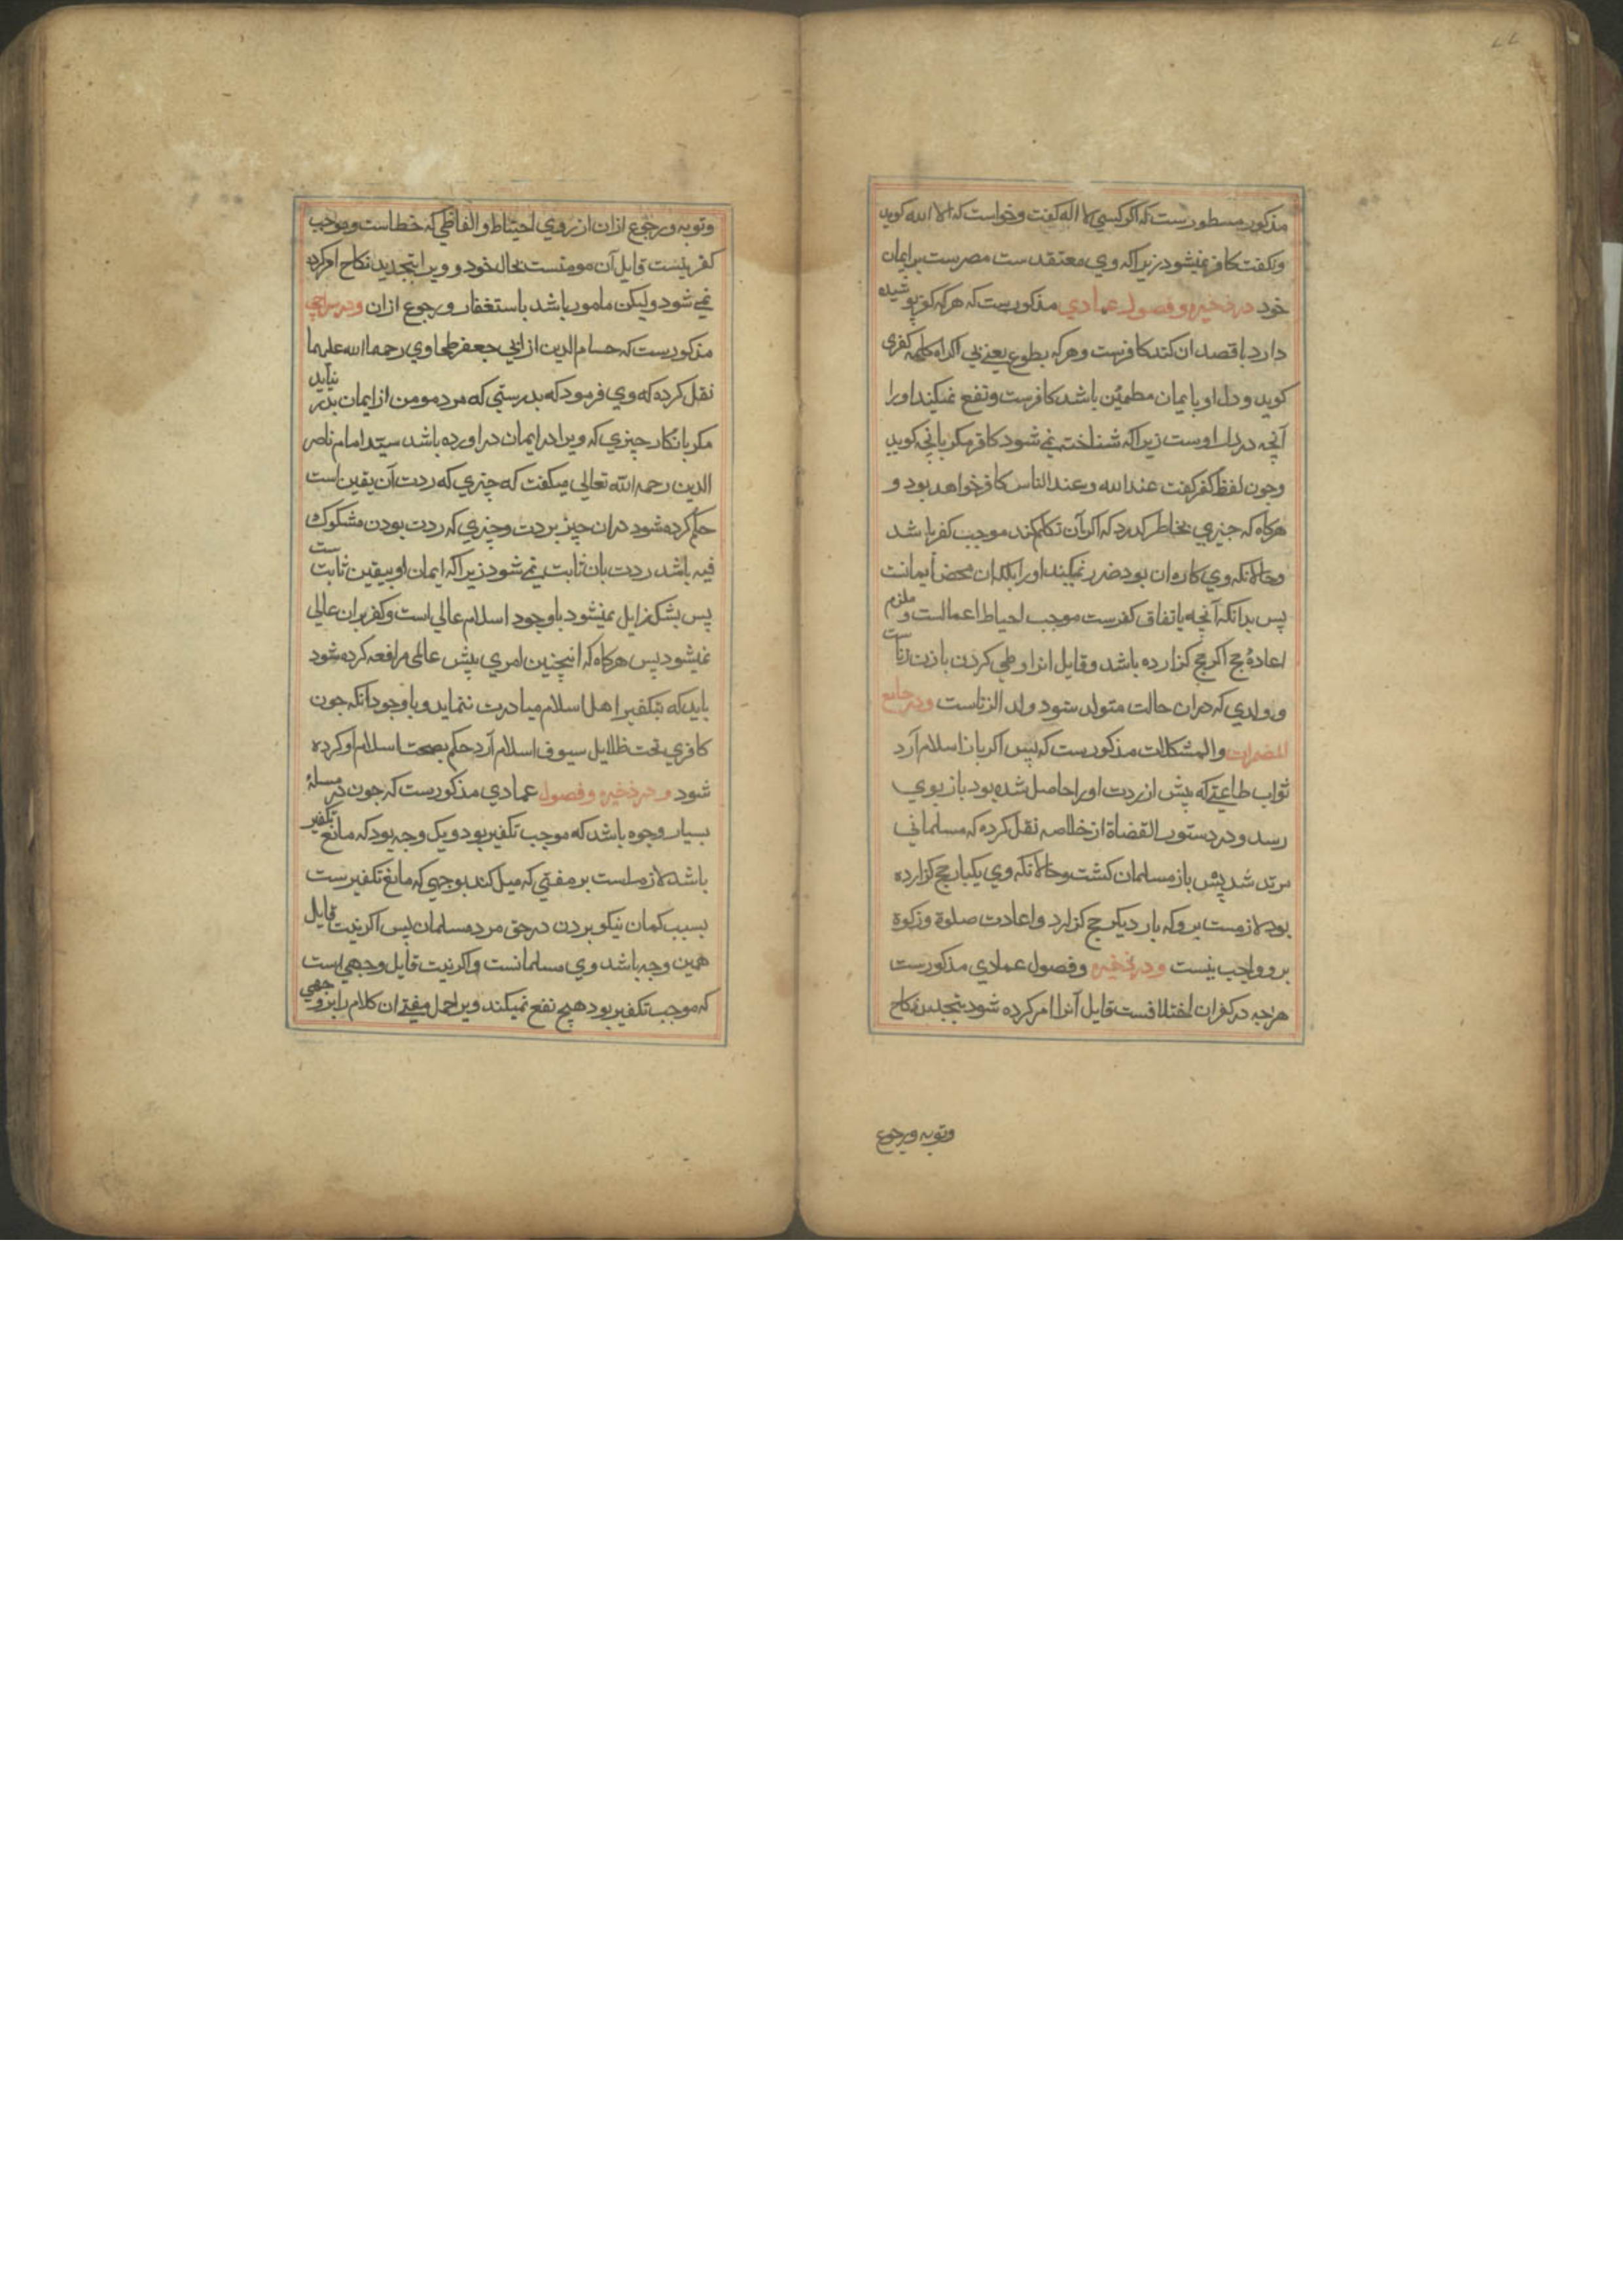 ٧٧
مذکور مسطورست که اکر کسی لا اله کفت وخواست که الا الله کوید
ونکفت کافر نمیشود زیرا که وی معتقدست مصرست بر ایمان
خود در ذخیره و فصول عمادی مذکورست که هر که کفر پوشیده
دارد یا قصد ان کند کافرست وهر که بطوع یعنے بی اکراه کلمه کفری
کوید و دل او بایمان مطمئن باشد کافرست ونفع نمیکند اورا
آنچه در دل اوست زیرا که شناخته نمے شود کافر مکر بانچه کوید
وچون لفظ کفر کفت عند الله وعند الناس کافر خواهد بود و
هرکاه که چیزی بخاطر کذرد که اکر بآن تکلم کند موجب کفر باشد
وحالانکه وی کاره ان بود ضرر نمیکند اورا بلکه ان محض ایمانست
پس بدانکه آنچه باتفاق کفرست موجب احباط اعمالست و ملزم
اعادهٔ حج اکر حج کزارده باشد وقایل انرا وطی کردن با زن زناست
و ولدی که دران حالت متولد شود ولد الزناست ودر جامع
المضمرات والمشکلات مذکورست که پس اکر باز اسلام آرد
ثواب طاعتے که پیش از ردت اورا حاصل شده بود باز بوی
رسد و در دستور القضاة از خلاصه نقل کرده که مسلمانی
مرتد شد پس باز مسلمان کشت وحالانکه وی یکبار حج کزارده
بود لازمست بروکه بار دیکر حج کزارد واعادت صلوة وزکوة
برو واجب نیست ودر ذخیره وفصول عمادی مذکورست
هرچه در کفر ان اختلافست قایل آنرا امر کرده شود بتجدید نکاح
وتوبه ورجوع
وتوبه ورجوع ازان از روی احتیاط و الفاظی که خطاست وموجب
کفر نیست قایل آن مومنست بحال خود و ویرا بتجدید نکاح امر کرده
نمے شود ولیکن مامور باشد باستغفار ورجوع ازان ودر سراجی
مذکورست که حسام الدین از ابی جعفر طحاوی رحمهما الله علیهما
نقل کرده که وی فرمود که بدرستی که مرد مومن از ایمان بدر نیاید
مکر بانکار چیزی که ویرا در ایمان در اورده باشد سید امام ناصر
الدین رحمه الله تعالی میکفت که چیزی که ردت آن یقین است
حکم کرده شود دران چیز بردت وچیزی که ردت بودن مشکوک
فیه باشد ردت بان ثابت نمے شود زیرا که ایمان او بیقین ثابت ست
پس بشک زایل نمیشود باوجود اسلام عالی است وکفر بران عالی
نمیشود پس هرکاه که اینچنین امری پیش عالمی مرافعه کرده شود
باید که بتکفیر اهل اسلام مبادرت ننماید و باوجود انکه چون
کافری تحت ظلایل سیوف اسلام آرد حکم بصحت اسلام او کرده
شود و در ذخیره وفصول عمادی مذکورست که چون در مسلهٔ
بسیار وجوه باشد که موجب تکفیر بود ویک وجه بود که مانع تکفیر
باشد لازم است بر مفتی که میل کند بوجهی که مانع تکفیرست
بسبب کمان نیکو بردن در حق مرد مسلمان پس اکر نیت قایل
همین وجه باشد وی مسلمانست واکر نیت قایل وجهی است
که موجب تکفیر بود هیچ نفع نمیکند ویرا حمل مفتی ان کلام را بر وجهی